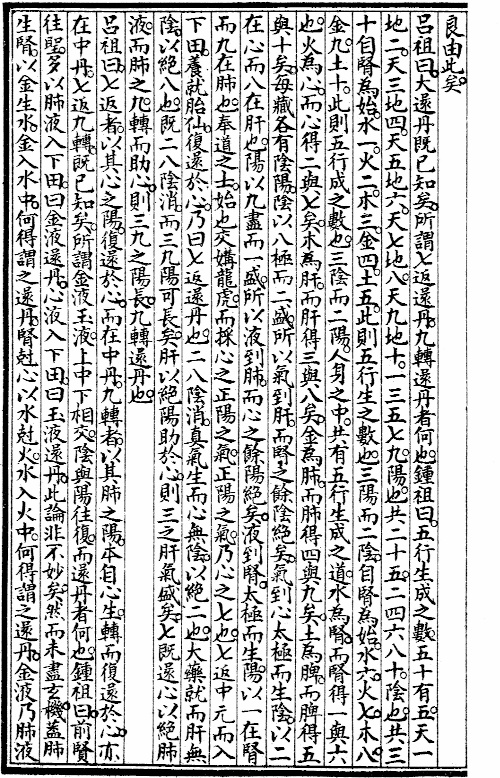 良由此矣
呂祖曰大還丹既已知矣所謂七返還丹九轉還丹者何也鍾祖曰五行生成之數五十有五天一
地二天三地四天五地六天七地八天九地十一三五七九陽也共二十五二四六八十陰也共三
十自腎為始水一火二木三金四土五此則五行生之數也三陽而二陰自腎為始水六火七木八
金九土十此則五行成之數也三陰而二陽人身之中共有五行生成之道水為腎而腎得一與六
也火為心而心得二與七矣木為肝而肝得三與八矣金為肺而肺得四與九矣土為脾而脾得五
與十矣每藏各有陰陽陰以八極而二盛所以氣到肝而腎之餘陰絕矣氣到心太極而生陰以二
在心而八在肝也陽以九盡而一盛所以液到肺而心之餘陽絕矣液到腎太極而生陽以一在腎
而九在肺也奉道之士始也交媾龍虎而採心之正陽之氣正陽之氣乃心之七也七返中元而入
下田養就胎仙復還於心乃曰七返還丹也二八陰消真氣生而心無陰以絕二也大藥就而肝無
陰以絕八也既二八陰消而三九陽可長矣肝以絕陽助於心則三之肝氣盛矣七既還心以絕肺
液而肺之九轉而助心則三九之陽長九轉還丹也
呂祖曰七返者以其心之陽復還於心而在中丹九轉者以其肺之陽本自心生轉而復還於心亦
在中丹七返九轉既已知矣所謂金液玉液上中下相交陰與陽往復而還丹者何也鍾祖曰前賢
往聖多以肺液入下田曰金液還丹心液入下田曰玉液還丹此論非不妙矣然而未盡玄機蓋肺
生腎以金生水金入水中何得謂之還丹腎尅心以水尅火水入火中何得謂之還丹金液乃肺液